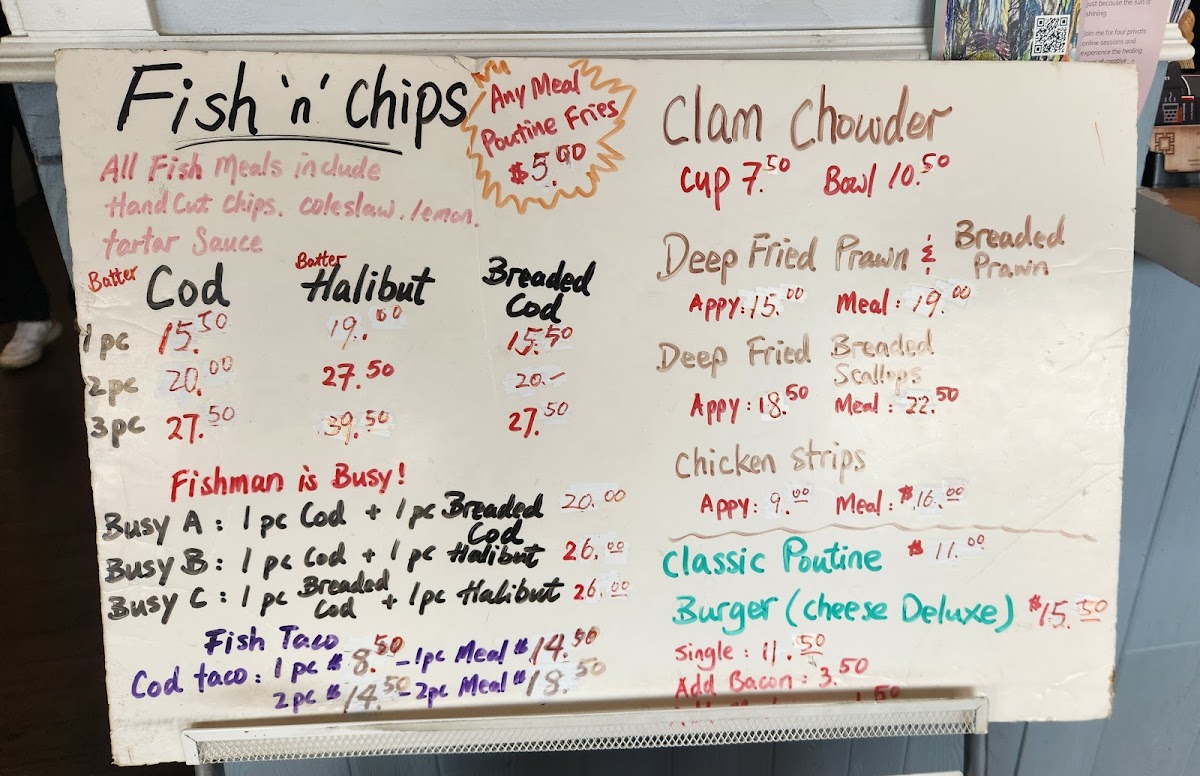 Fish 'n' Chips
Any Meal
Poutine Fries
$5.00
All Fish Meals include
Hand Cut Chips. coleslaw. lemon.
tartar Sauce
Batter Cod Batter Halibut Breaded Cod
1 pc 15.50 19.00 15.50
2pc 20.00 27.50 20.-
3pc 27.50 39.50 27.50
Fishman is Busy!
Busy A : 1 pc Cod + 1 pc Breaded Cod 20.00
Busy B : 1 pc Cod + 1 pc Halibut 26.00
Busy C : 1 pc Breaded Cod + 1pc Halibut 26.00
Fish Taco
Cod taco : 1 pc $8.50 - 1pc Meal $14.50
2pc $14.50 - 2pc Meal $18.50
Clam Chowder
Cup 7.50 Bowl 10.50
Deep Fried Prawn & Breaded Prawn
Appy : 15.00 Meal : 19.00
Deep Fried Breaded Scallops
Appy : 18.50 Meal : 22.50
Chicken Strips
Appy : 9.00 Meal : $16.00
Classic Poutine $11.00
Burger (cheese Deluxe) $15.50
Single : 11.50
Add Bacon : 3.50
just because the sun is
shining.
Join me for four private
online sessions and
experience the healing